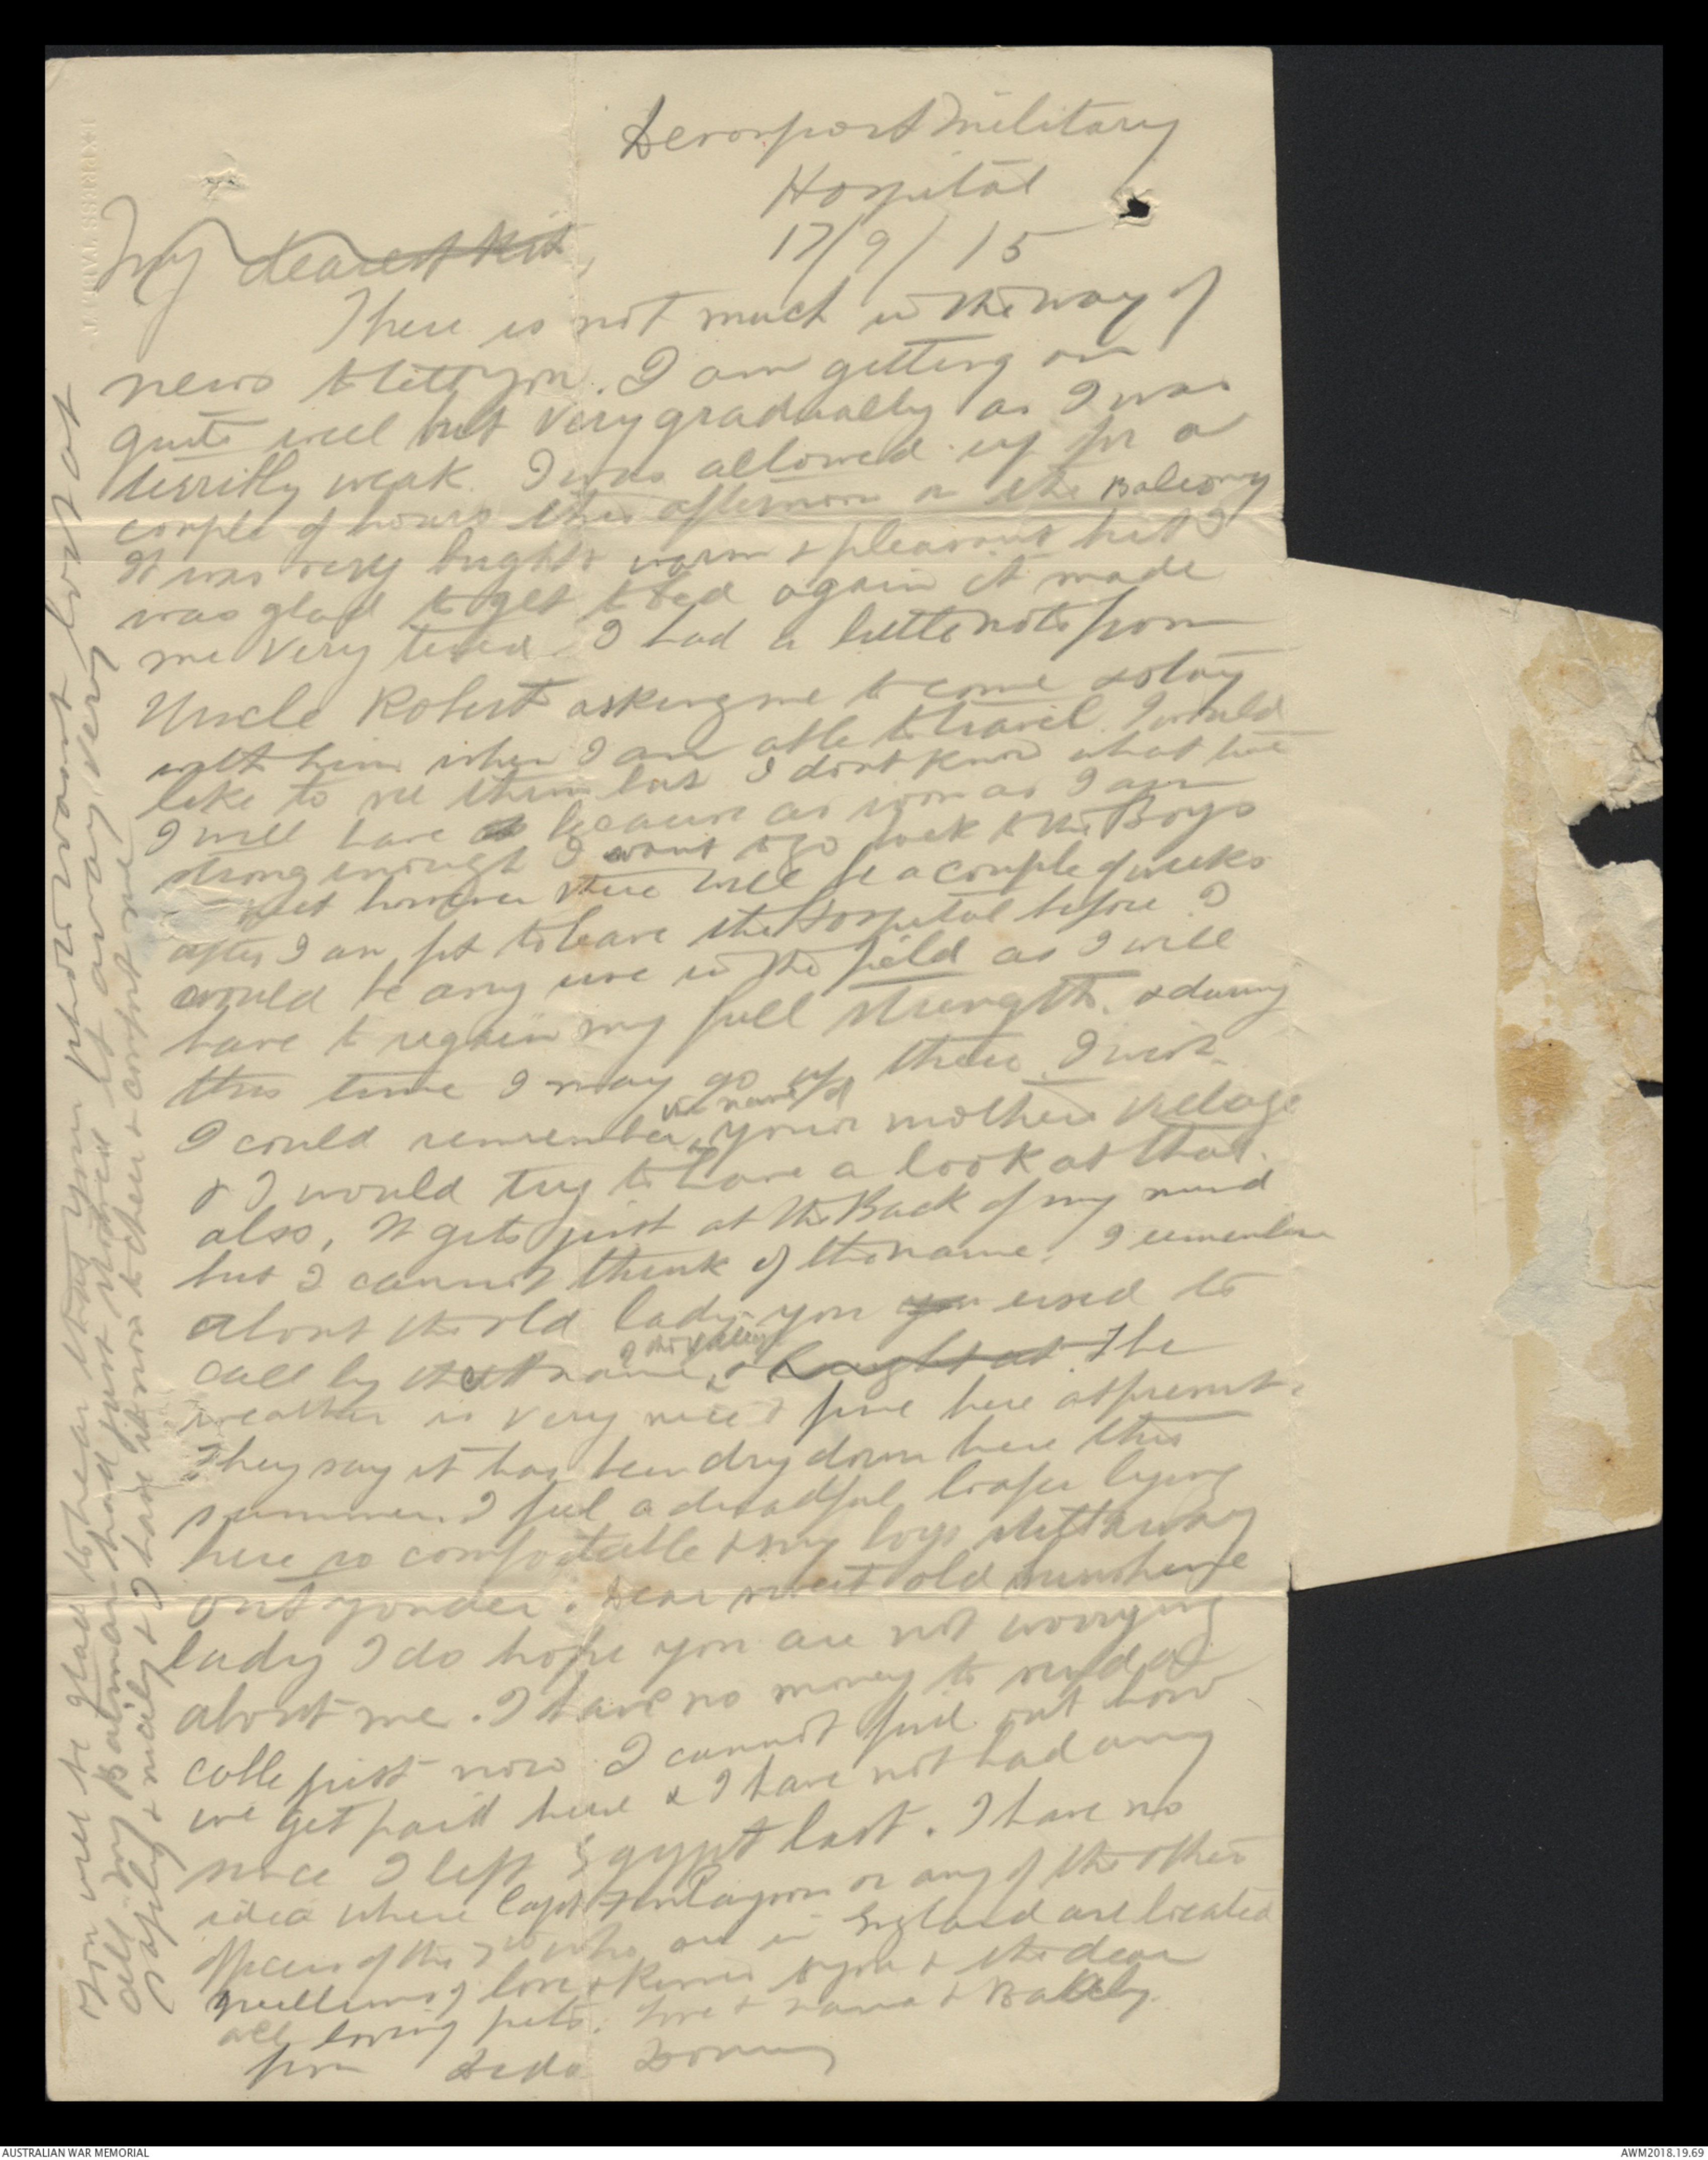 Devonport Military
Hospital
17/9/15
My dearest Kit,
There is not much in the way of
news to tell you. I am getting on
quite well but very gradually as I was
terribly weak. I was allowed up for a
couple of hours this afternoon on the Balcony
It was very bright & warm & pleasant but I
was glad to get to bed again it made
me very tired. I had a little note from
Uncle Robert asking me to come & stay
with him when I am able to travel. I would
like to see them but I dont know what time
I will have because as soon as I am
strong enough I want to go back to the Boys
yet however there will be a couple of weeks
after I am fit to leave the Hospital before I
would be any use in the field as I will
have to regain my full strength, & during
this time I may go up there. I wish
the name of
I could remember your mothers village
& I would try to have a look at that
also, It gets just at the Back of my mind
but I cannot think of the name. I remember
about the old lady you you used to
of the valley
call by that name, & laught at. The
weather is very nice & fine here at present.
They say it has been dry down here this
summer. I feel a dreadful loafer lying
here so comfortable & my boys still away
out yonder. Dear sweet old sunshine
lady I do hope you are not worrying
about me. I have no money to send a
cable just now. I cannot find out how
we get paid here & I have not had any
since I left Egypt last. I have no
idea where Capt Finlayson or any of the other
officers of the who are in England are located
love & kisses to you & the dear
all loving pets. love & &
from Dido
You will be glad to hear that your photo wasnt lost at
all my Batman had just stowed it away very
safely & nicely & I have it now to cheer & comfort me
J. PERVAL SSERPXE
AUSTRALIAN WAR MEMORIAL
AWM2018.19.69